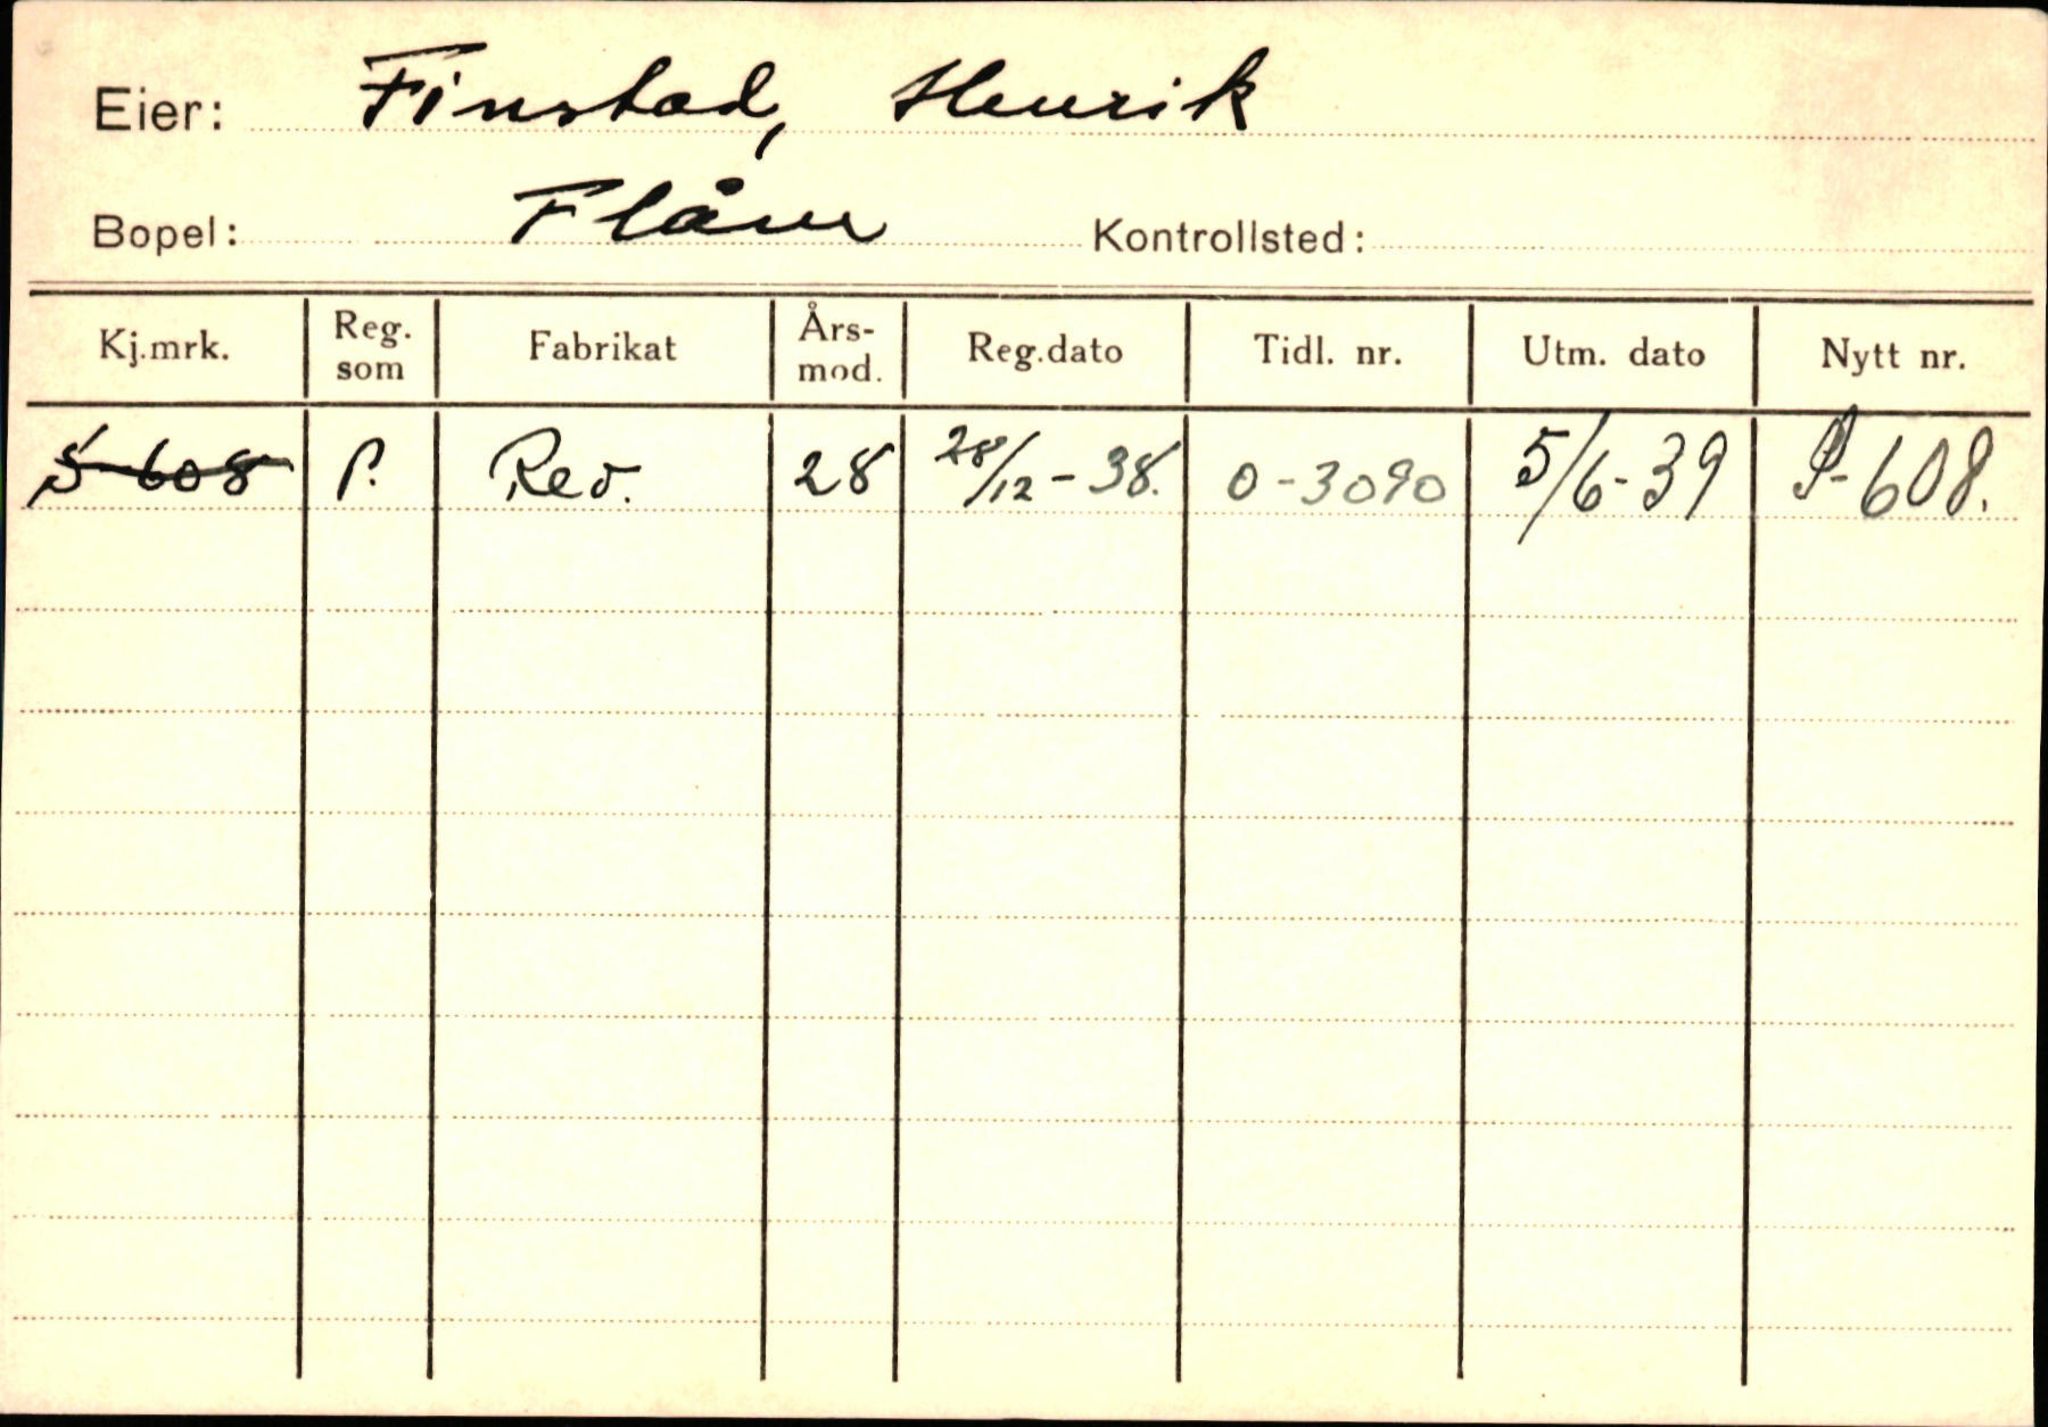 Eier: Finstad, Henrik
Bopel: Flåm Kontrollsted:
Kj.mrk. Reg. som Fabrikat Års-mod. Reg.dato Tidl. nr. Utm. dato Nytt nr.
S-608 P. Reo. 28 28/12-38. O-3090 5/6-39 S-608.